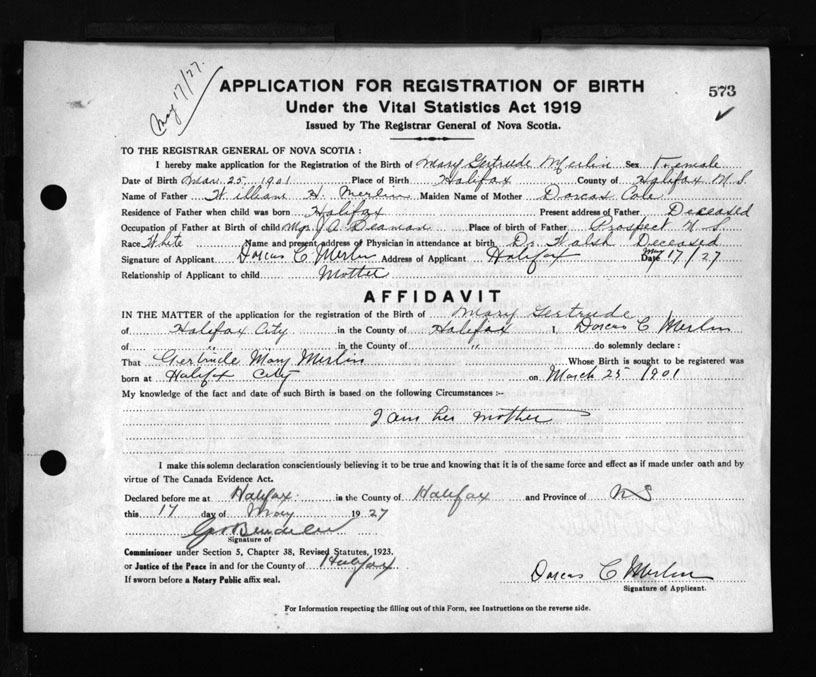 May 17/27.
APPLICATION FOR REGISTRATION OF BIRTH
573
Under the Vital Statistics Act 1919
Issued by The Registrar General of Nova Scotia.
TO THE REGISTRAR GENERAL OF NOVA SCOTIA :
I hereby make application for the Registration of the Birth of Mary Gertrude Merlin Sex Female
Date of Birth Mar. 25, 1901 Place of Birth Halifax County of Halifax N.S.
Name of Father William H. Merlin Maiden Name of Mother Dorcas Cole
Residence of Father when child was born Halifax Present address of Father Deceased
Occupation of Father at Birth of child Mgr. J.A. Leaman Place of birth of Father Prospect N.S.
Race White Name and present address of Physician in attendance at birth Dr. Walsh Deceased
Signature of Applicant Dorcas C Merlin Address of Applicant Halifax Date May 17/27
Relationship of Applicant to child Mother
AFFIDAVIT
IN THE MATTER of the application for the registration of the Birth of Mary Gertrude
of Halifax City in the County of Halifax I, Dorcas C Merlin
of " in the County of " do solemnly declare :
That Gertrude Mary Merlin Whose Birth is sought to be registered was
born at Halifax City on March 25 1901
My knowledge of the fact and date of such Birth is based on the following Circumstances :-
I am her mother
I make this solemn declaration conscientiously believing it to be true and knowing that it is of the same force and effect as if made under oath and by
virtue of The Canada Evidence Act.
Declared before me at Halifax in the County of Halifax and Province of NS
this 17 day of May 1927
Signature of
Commissioner under Section 5, Chapter 38, Revised Statutes, 1923.
or Justice of the Peace in and for the County of Halifax
If sworn before a Notary Public affix seal.
Dorcas C Merlin
Signature of Applicant.
For Information respecting the filling out of this Form, see Instructions on the reverse side.